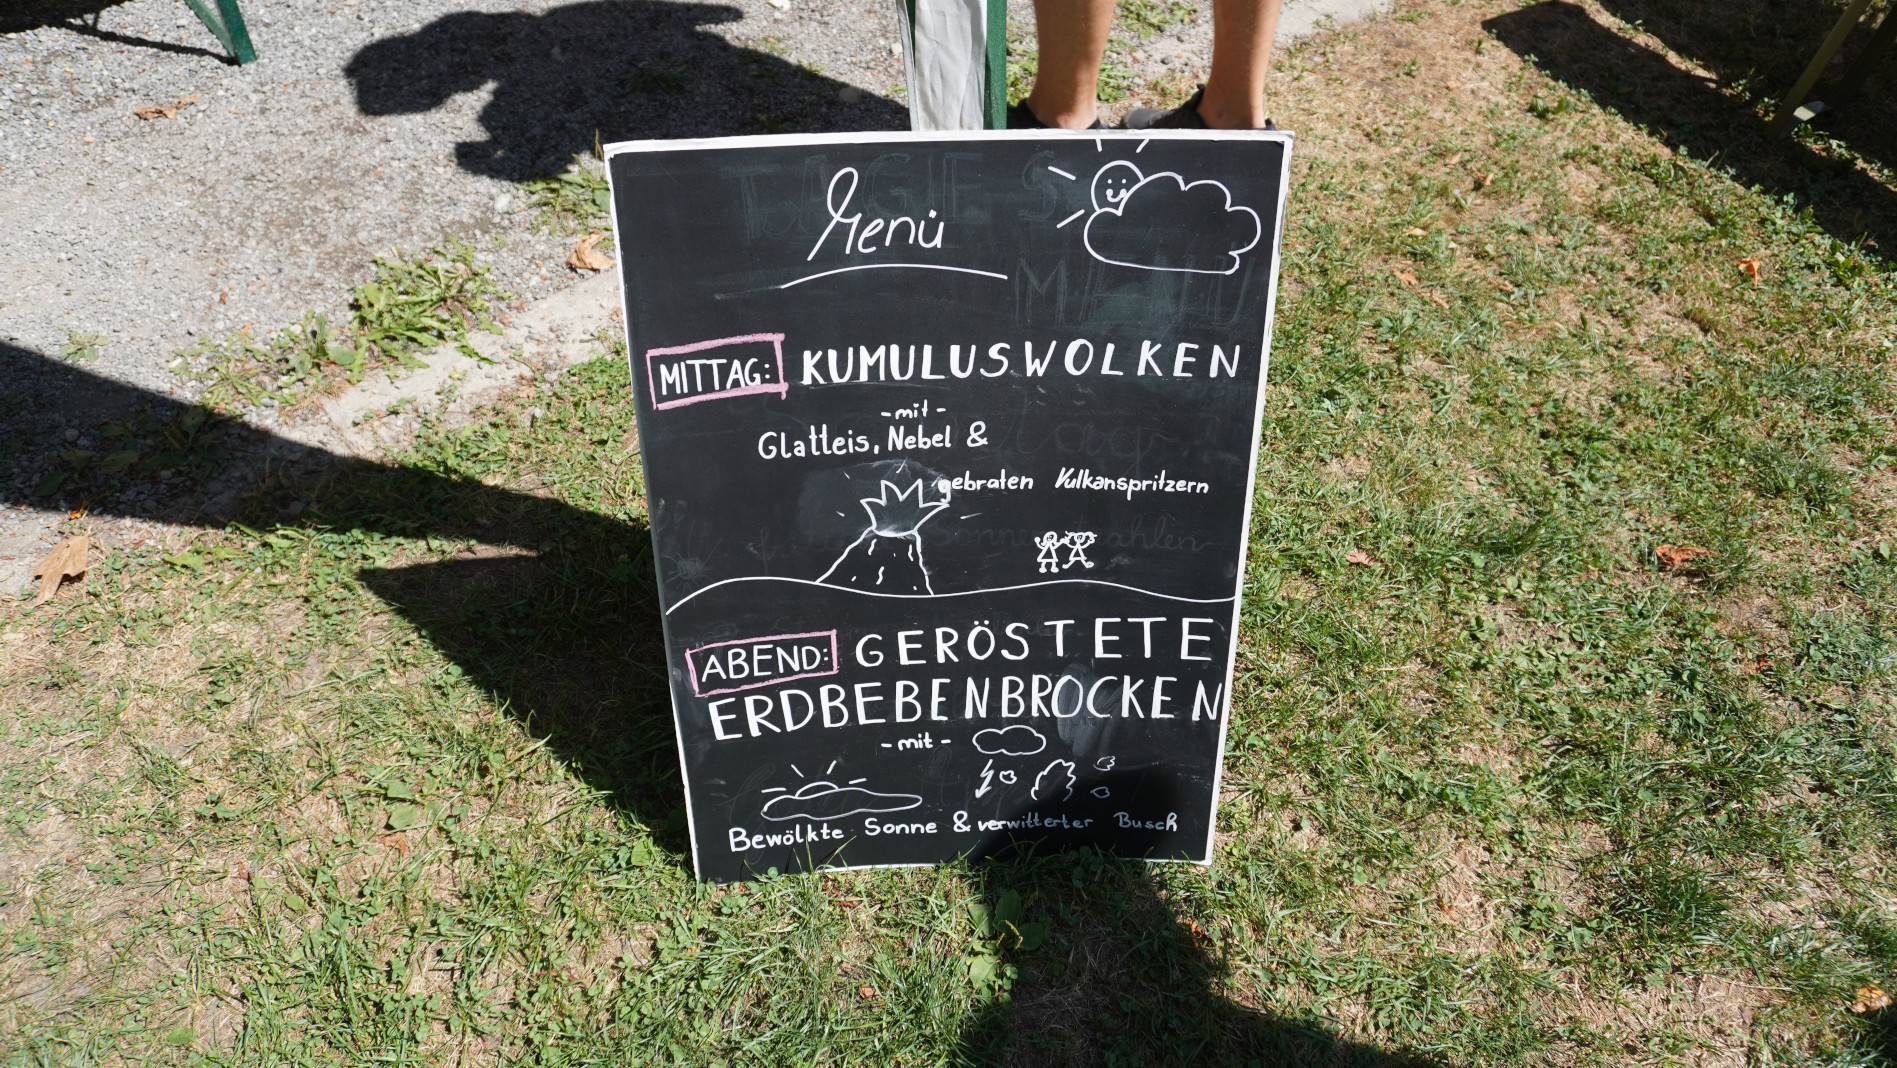 Menü
MITTAG: KUMULUSWOLKEN
- mit -
Glatteis, Nebel &
gebraten Vulkanspritzern
ABEND: GERÖSTETE
ERDBEBENBROCKEN
- mit -
Bewölkte Sonne & verwitterter Busch